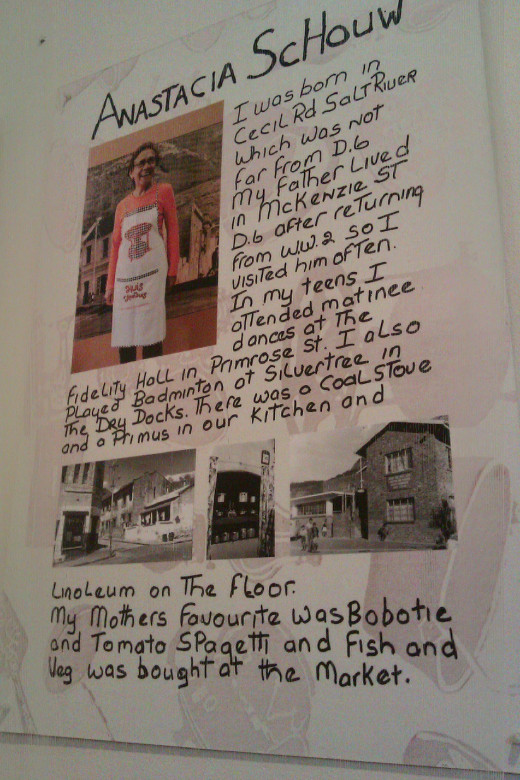 ANASTACIA ScHouw
I was born in
Cecil Rd SaLT RIVER
which was not
far from D.6
My Father Lived
in McKenzie ST
D.6 after returning
from W.W.2 so I
visited him often.
In my teens I
attended matinee
dances at the
Fidelity Hall in Primrose St. I also
Played Badminton at Silvertree in
The Dry Docks. There was a Coal Stove
and a Primus in our Kitchen and
Linoleum on The floor.
My Mothers Favourite was Bobotie
and Tomato SPagetti and Fish and
Veg was bought at the Market.